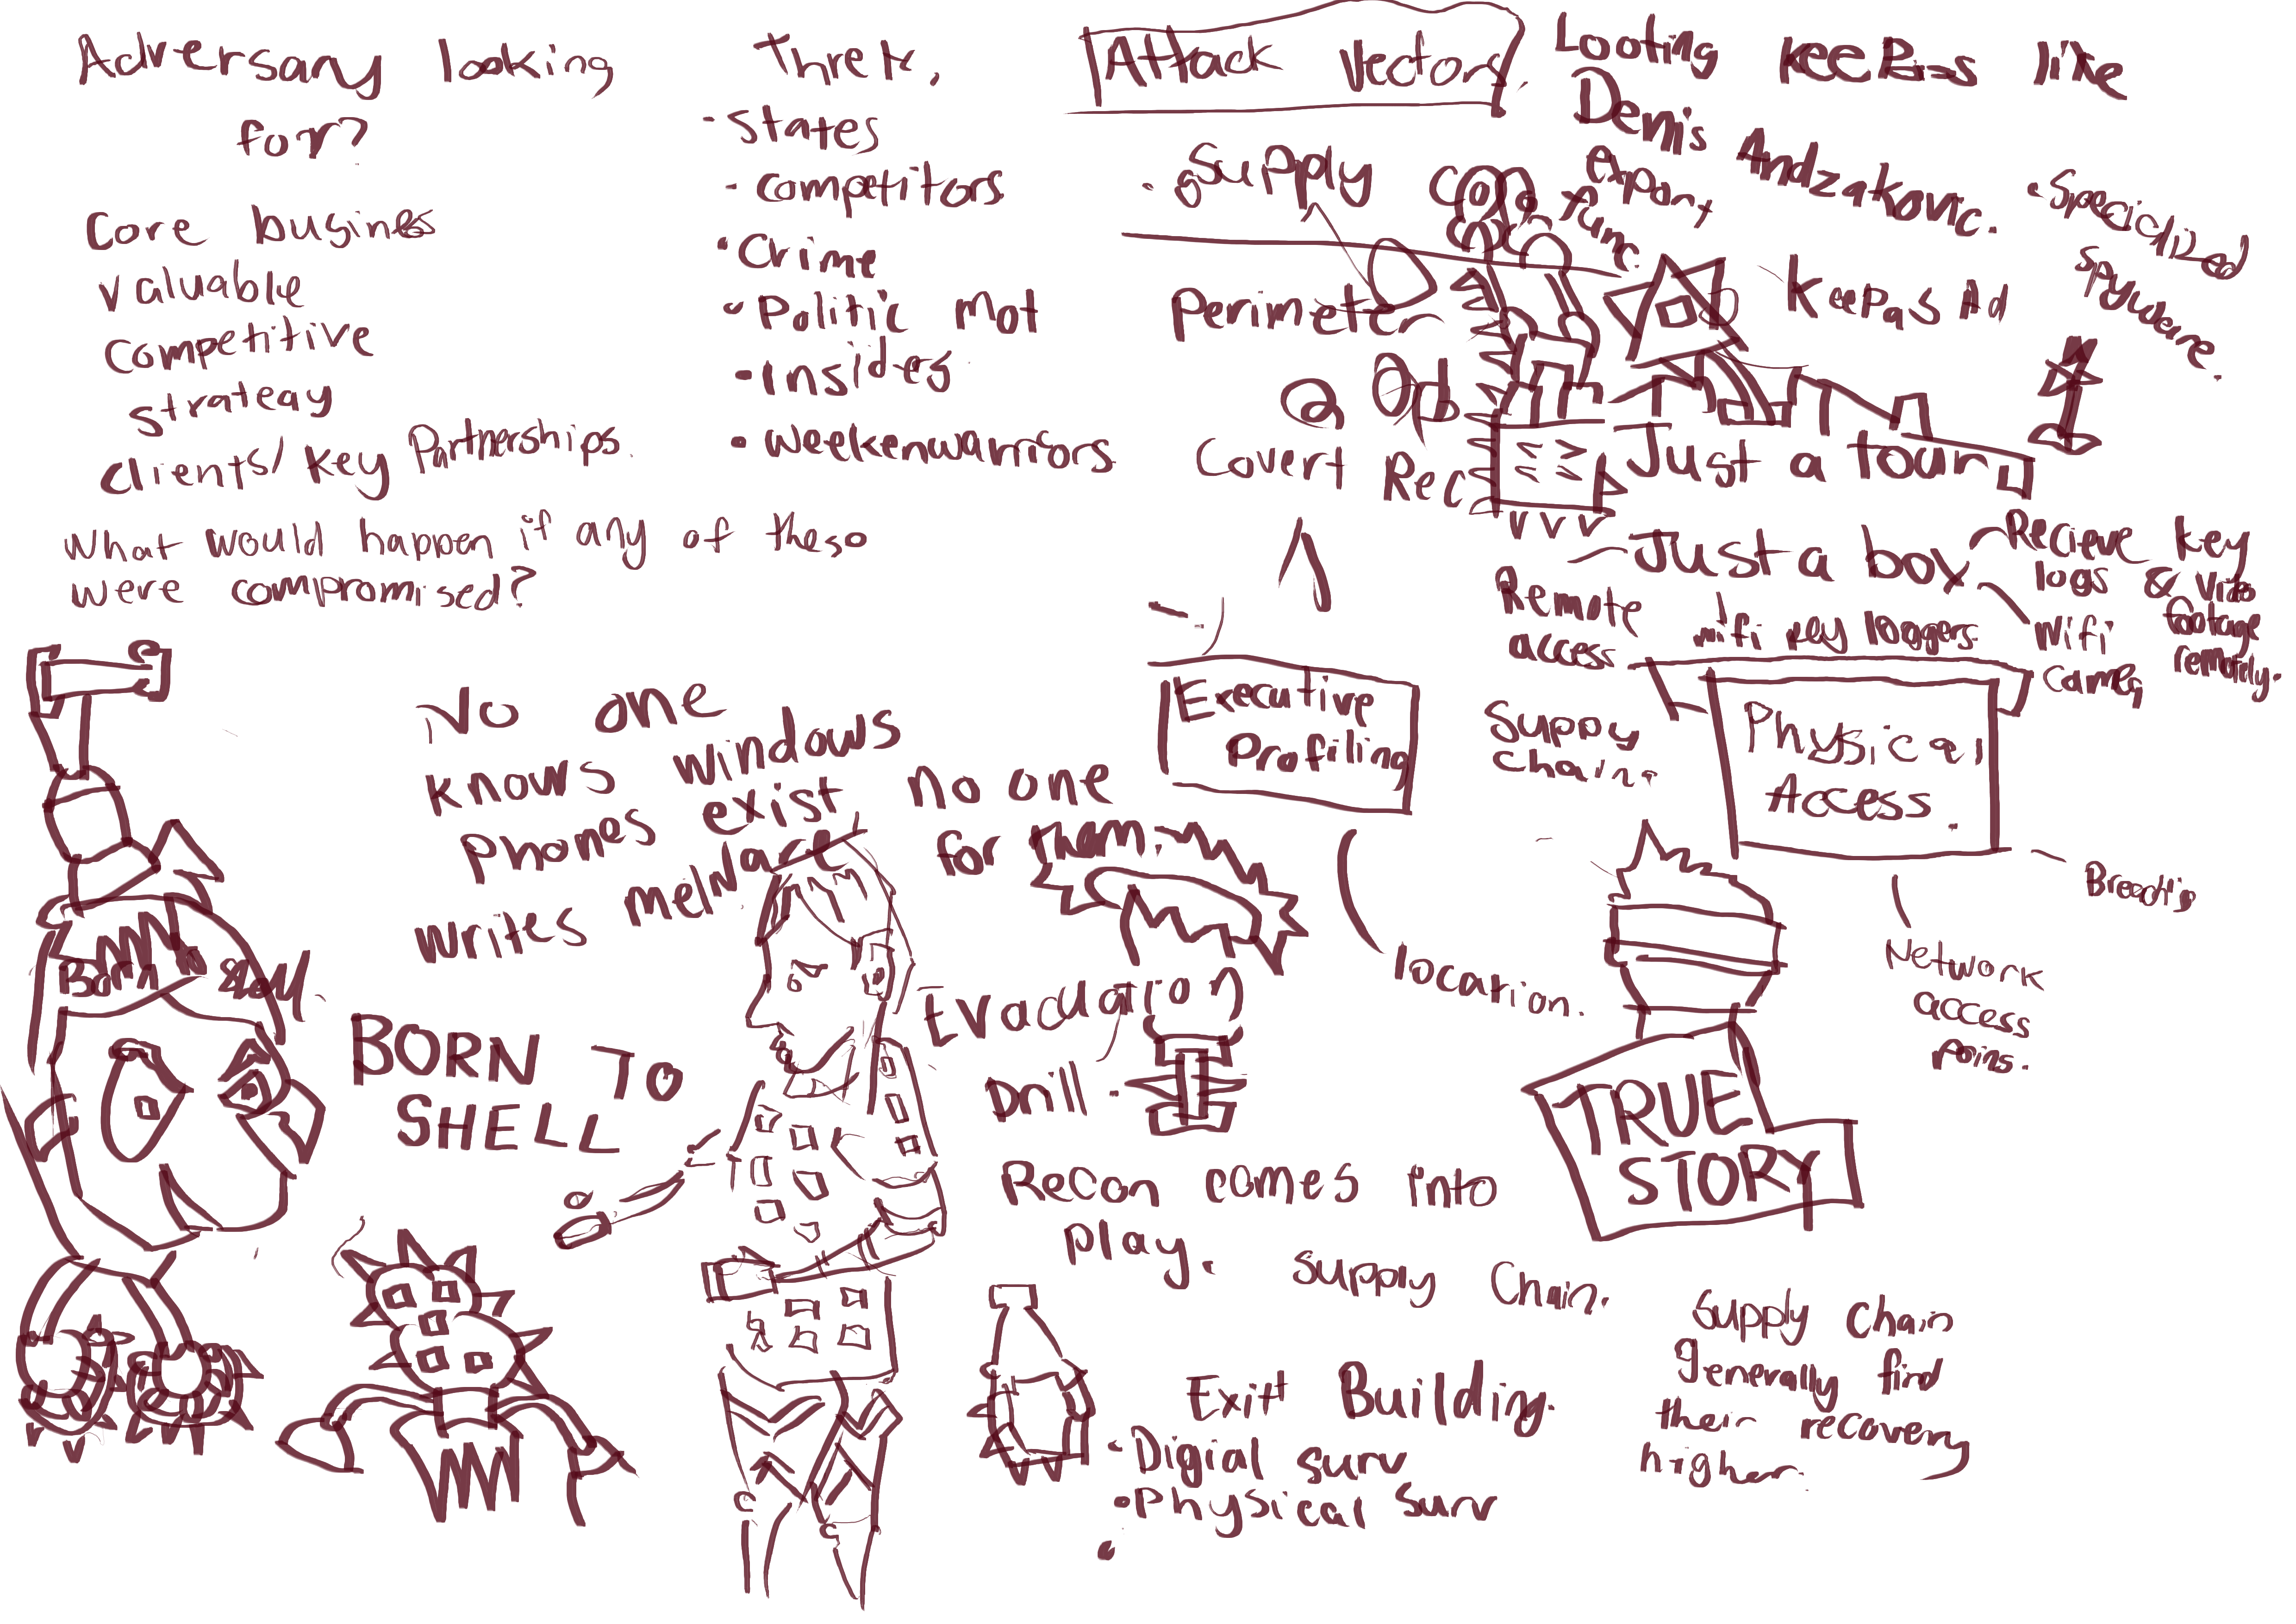 Adversary looking
for?
Core business
Valuable
Competitive
Strateay
Clients/ Key Partnerships.
What would happen if any of these
were compromised?
Thret.
· States
· Competitors
· Crime
· Politic Mot
· Insides
· Weekenwarriors
Attack Vectors.
· Supply
Perimeter
Covert Rec
Looting KeePass like
Denis Andzakovic.
expant
· Specialized
Spyware.
KeePas Ad
Just a tour
Just a box
Recieve key
logs & video
footage
remotly.
Remote
access
wifi key loggers
Wifi
Camer
Suppy
Chain.
Executive
Profiling
Physical
Access.
location.
Network
access
Poins.
No one
knows windows
phones exist no one
writes melware for them.
BORN TO
SHELL
Evacuation
Drill.
Recon comes into
play. Supply Chain.
TRUE
STORY
Exitt Building.
· Digial Surv
· Physical Surv
Supply Chain
generally find
their recovery
higher.